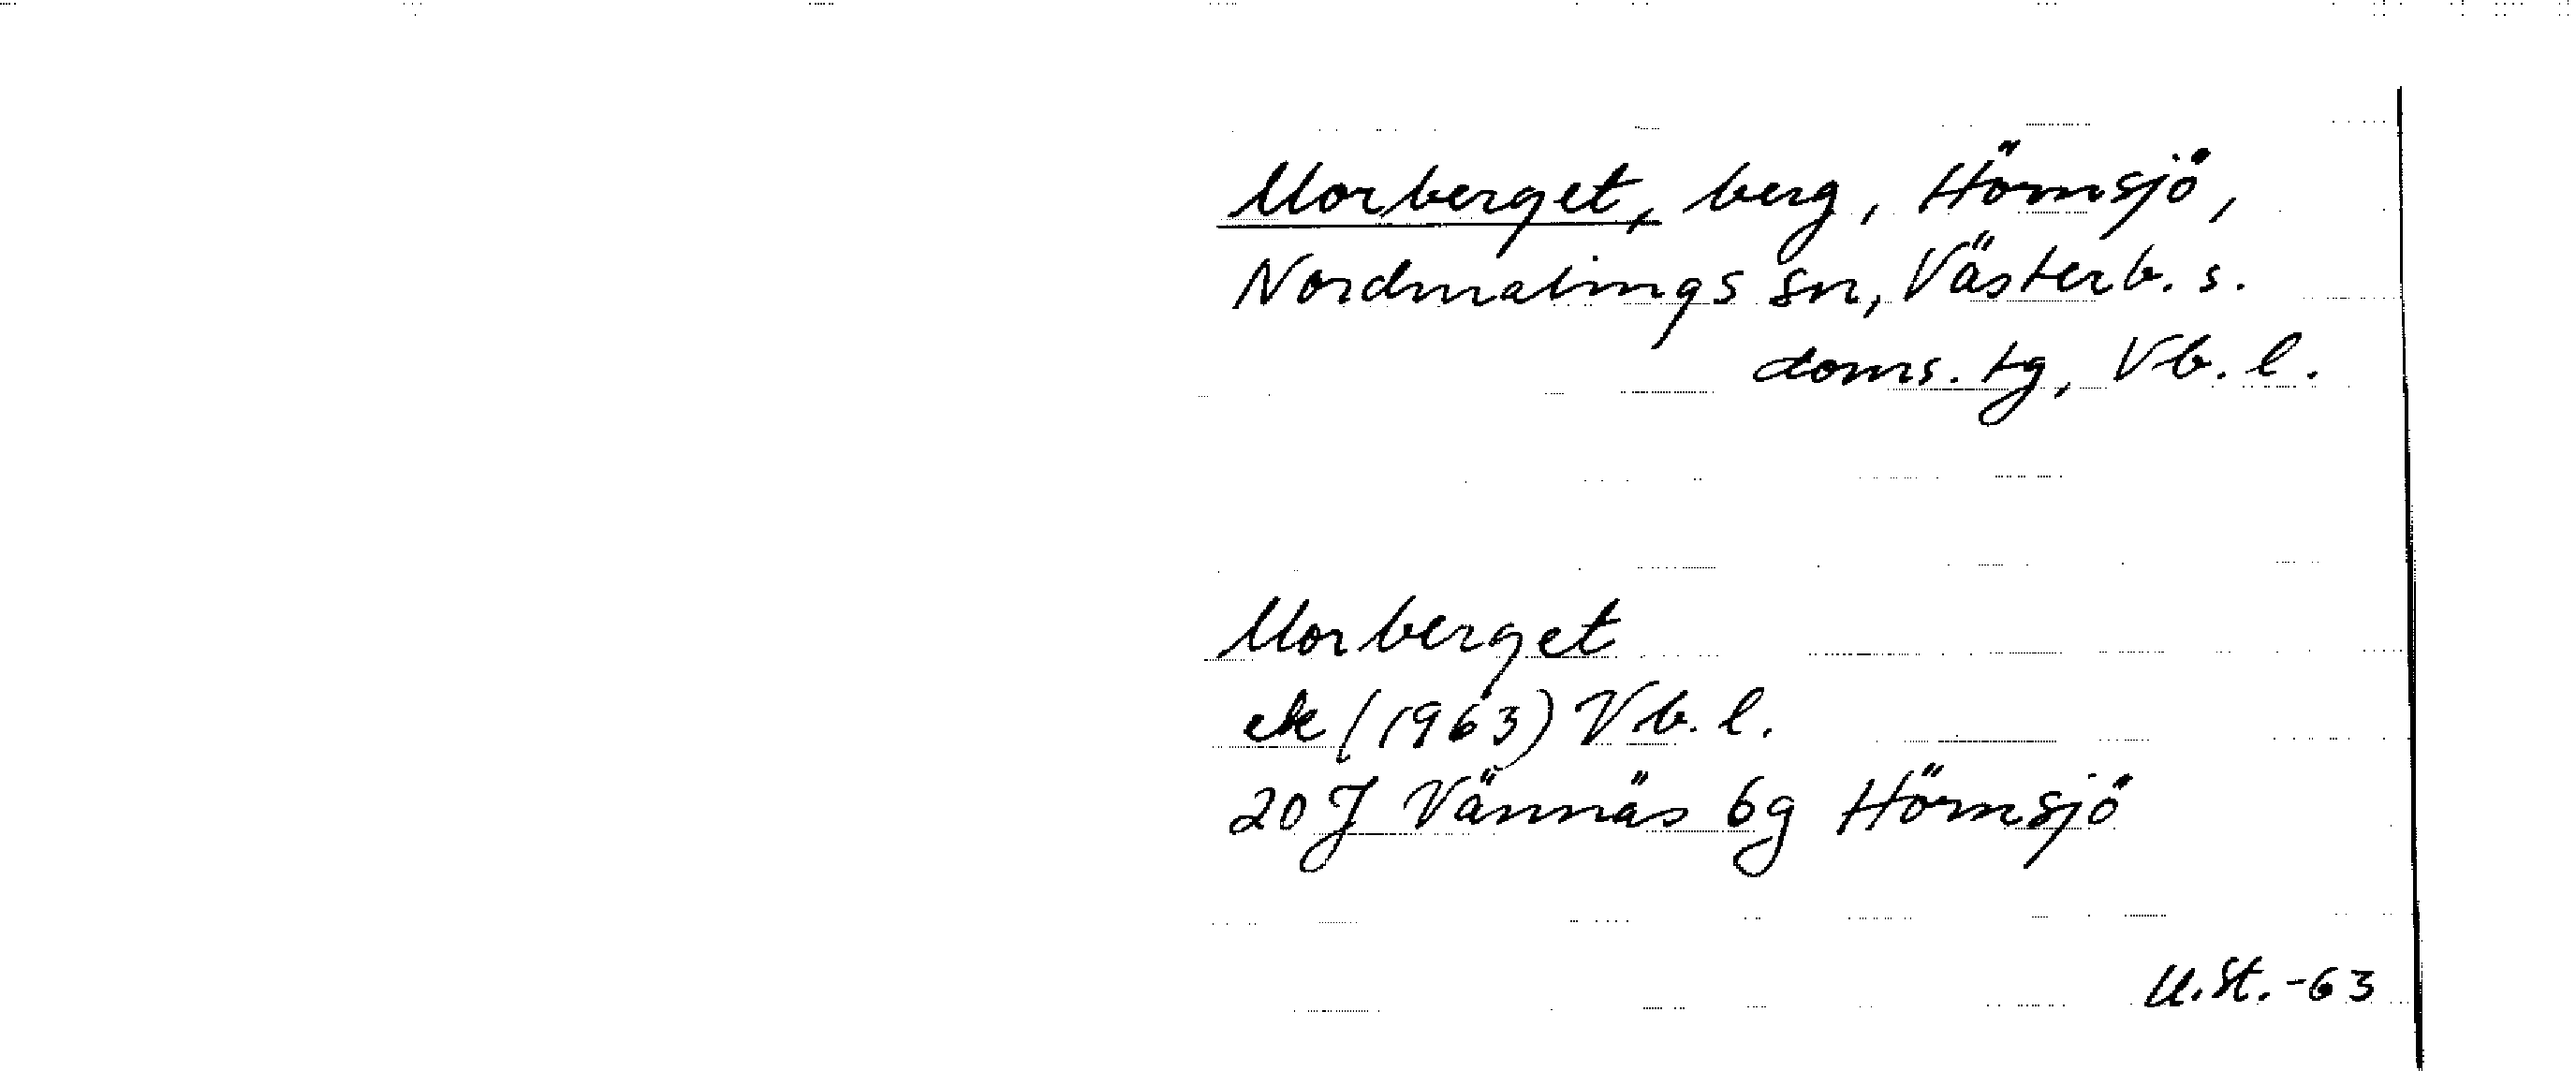 Morberget, berg, Hörnsjö,
Nordmalings sn, Västerb. s.
doms. tg, Vb. l.
Morberget
ek (1963) Vb. l.
20 J Vännäs 6g Hörnsjö
M.St.-63